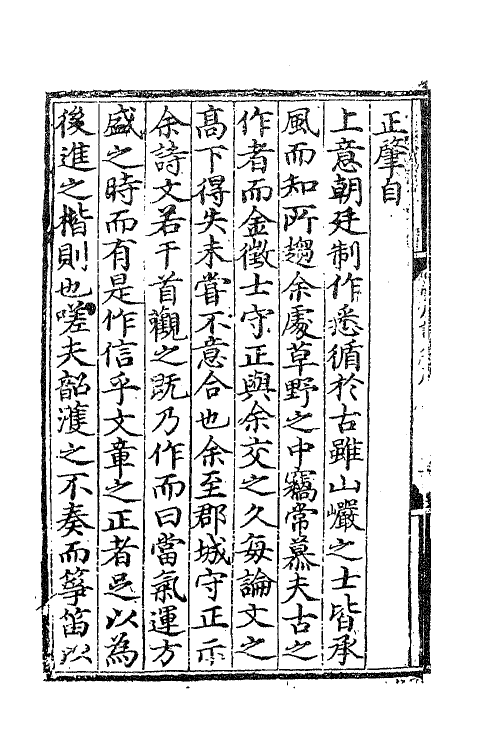 正肇自
上意朝廷制作悉循於古雖山巖之士皆承
風而知所趨余處草野之中竊常慕夫古之
作者而金徵士守正與余交之久每論文之
高下得失未嘗不意合也余至郡城守正示
余詩文若干首觀之既乃作而曰當氣運方
盛之時而有是作信乎文章之正者足以為
後進之楷則也嗟夫韶濩之不奏而箏笛以